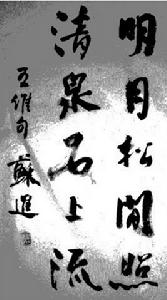 明月松間照
清泉石上流
王維句 蘇進